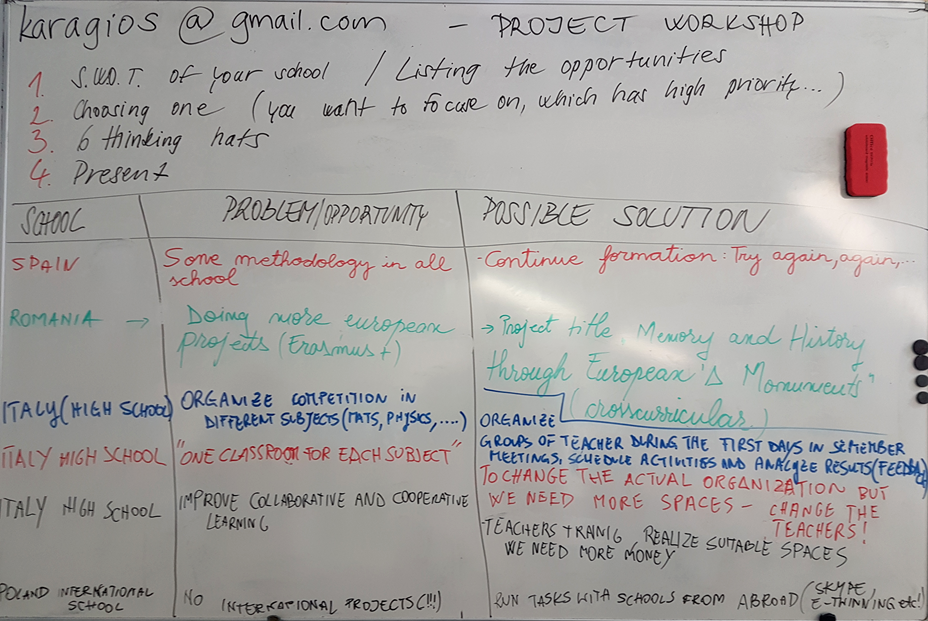 karagios@gmail.com - PROJECT WORKSHOP
1. S.W.O.T. of your school / Listing the opportunities
2. Choosing one (you want to focuse on, which has high priority...)
3. 6 thinking hats
4. Present
SCHOOL PROBLEM/OPPORTUNITY POSSIBLE SOLUTION
SPAIN
Some methodology in all
school
-Continue formation: Try again, again,...
ROMANIA →
Doing more european
projects (Erasmus+)
→ Project title, Memory and History
through European's Monuments"
(crosscurricular)
ITALY (HIGH SCHOOL)
ORGANIZE COMPETITION IN
DIFFERENT SUBJECTS (MATS, PHYSICS, ....)
ORGANIZE
GROUPS OF TEACHER DURING THE FIRST DAYS IN SEPTEMBER
MEETINGS, SCHEDULE ACTIVITIES AND ANALYZE RESULTS (FEEDBACK
ITALY HIGH SCHOOL
"ONE CLASSROOM FOR EACH SUBJECT"
TO CHANGE THE ACTUAL ORGANIZATION BUT
WE NEED MORE SPACES - CHANGE THE
TEACHERS!
ITALY HIGH SCHOOL
IMPROVE COLLABORATIVE AND COOPERATIVE
LEARNING
-TEACHERS TRANIG, REALIZE SUITABLE SPACES
WE NEED MORE MONEY
POLAND INTERNATIONAL
SCHOOL
NO INTERNATIONAL PROJECTS (!!!)
RUN TASKS WITH SCHOOLS FROM ABROAD (SKYPE,
E-THINNING etc!